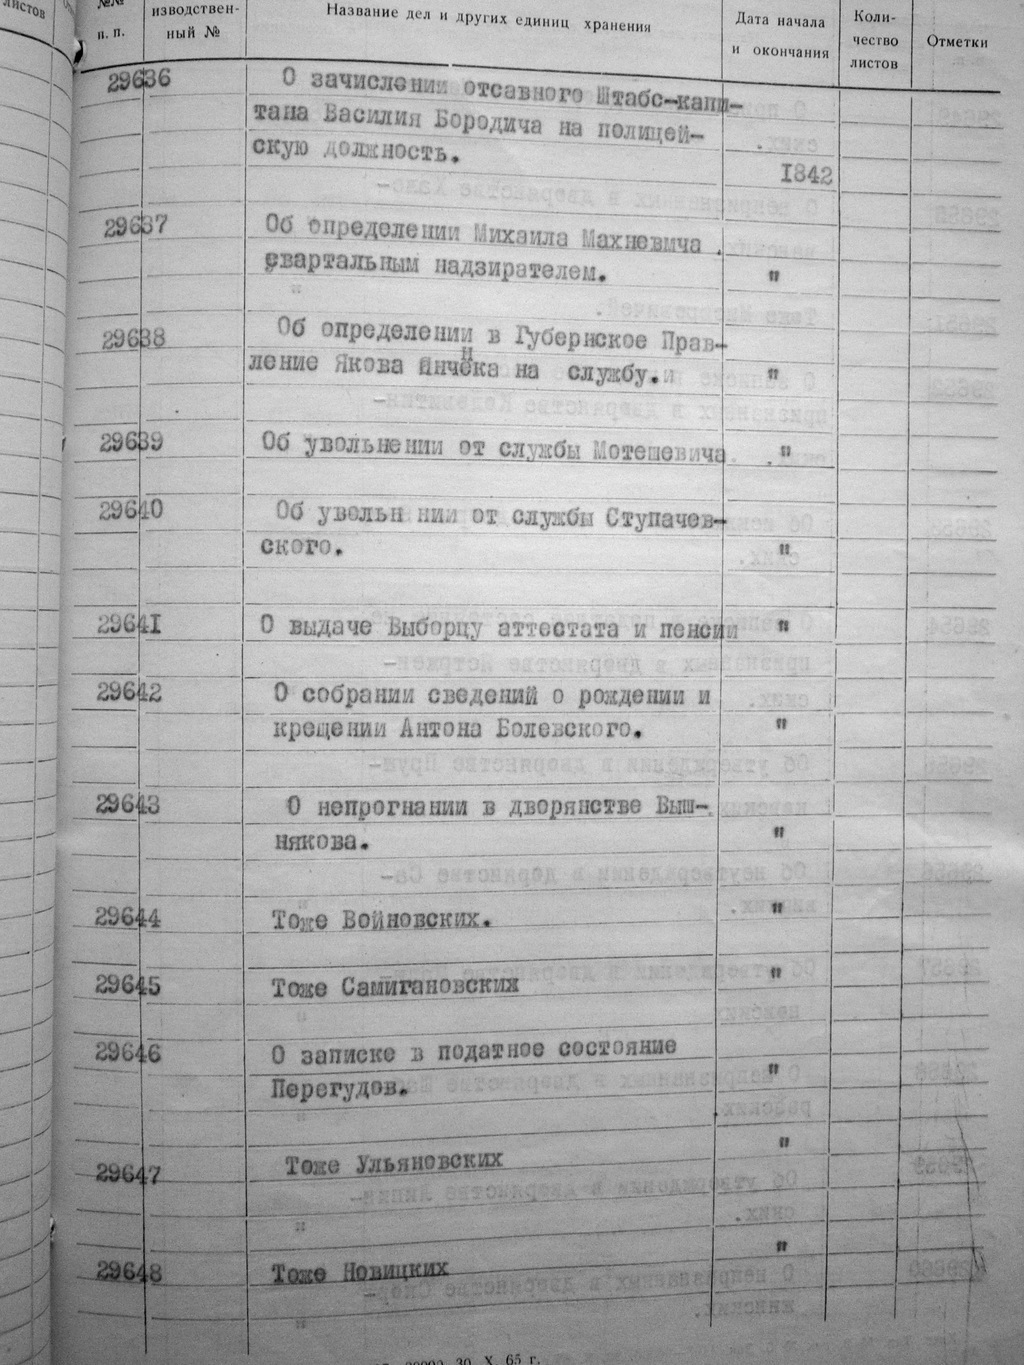 листов
№№
п. п.
изводствен-
ный №
Название дел и других единиц хранения
Дата начала
и окончания
Коли-
чество
листов
Отметки
29636 О зачислении отсавного Штабс-капи-
тана Василия Бородича на полицей-
скую должность.
1842
29637 Об определении Михаила Махневича .
евартальным надзирателем. "
29638 Об определении в Губернское Прав-
ление Якова Янчёка на службу. "
29639 Об увольнении от службы Мотешевича ."
29640 Об увольн нии от службы Ступачев-
ского. "
29641 О выдаче Выборцу аттестата и пенсии "
29642 О собрании сведений о рождении и
крещении Антона Болевского. "
29643 О непрогнании в дворянстве Выш-
някова. "
29644 Тоже Войновских. "
29645 Тоже Самигановских "
29646 О записке в податное состояние
Перегудов. "
29647 Тоже Ульяновских "
29648 Тоже Новицких "
30. X. 65 г.